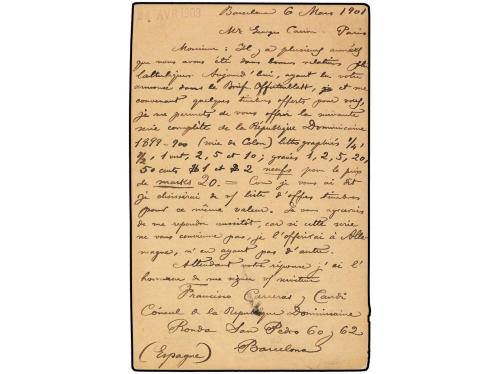 Barcelona 6 Mars 1901
Mr Georges Carion - Paris
Monsieur: Il y a plusieurs années
que nous avons été dans bonnes relatives phi
latheliques. Aujourd'hui, ayant lu votre
annonce dans le Brief Offertenblatt, je et me
convenant quelques timbres offerts pour vous,
je me permets de vous offrir la suivante
serie complète de la République Dominicaine
1899-900 (serie de Colon) litographiés 1/4,
1/2, 1 cent, 2, 5 et 10; gravés 1, 2, 5, 20,
50 cents $1 et $2 neufs pour le prix
de marks 20. = Comme je vous ai dit
je choisirai de v/ liste d'offres timbres
pour ce même valeur. Je vous agréerais
de me repondre aussitôt, car si cette serie
ne vous convienne pas, je l'offrirai à Alle-
magne, n'en ayant pas d'autre.
Attendant votre réponse j'ai l'
honneur de me signer v/ serviteur
Francisco Carreras y Candi
Cónsul de la Republique Dominicaine
Ronda San Pedro 60 y 62
(Espagne) Barcelona